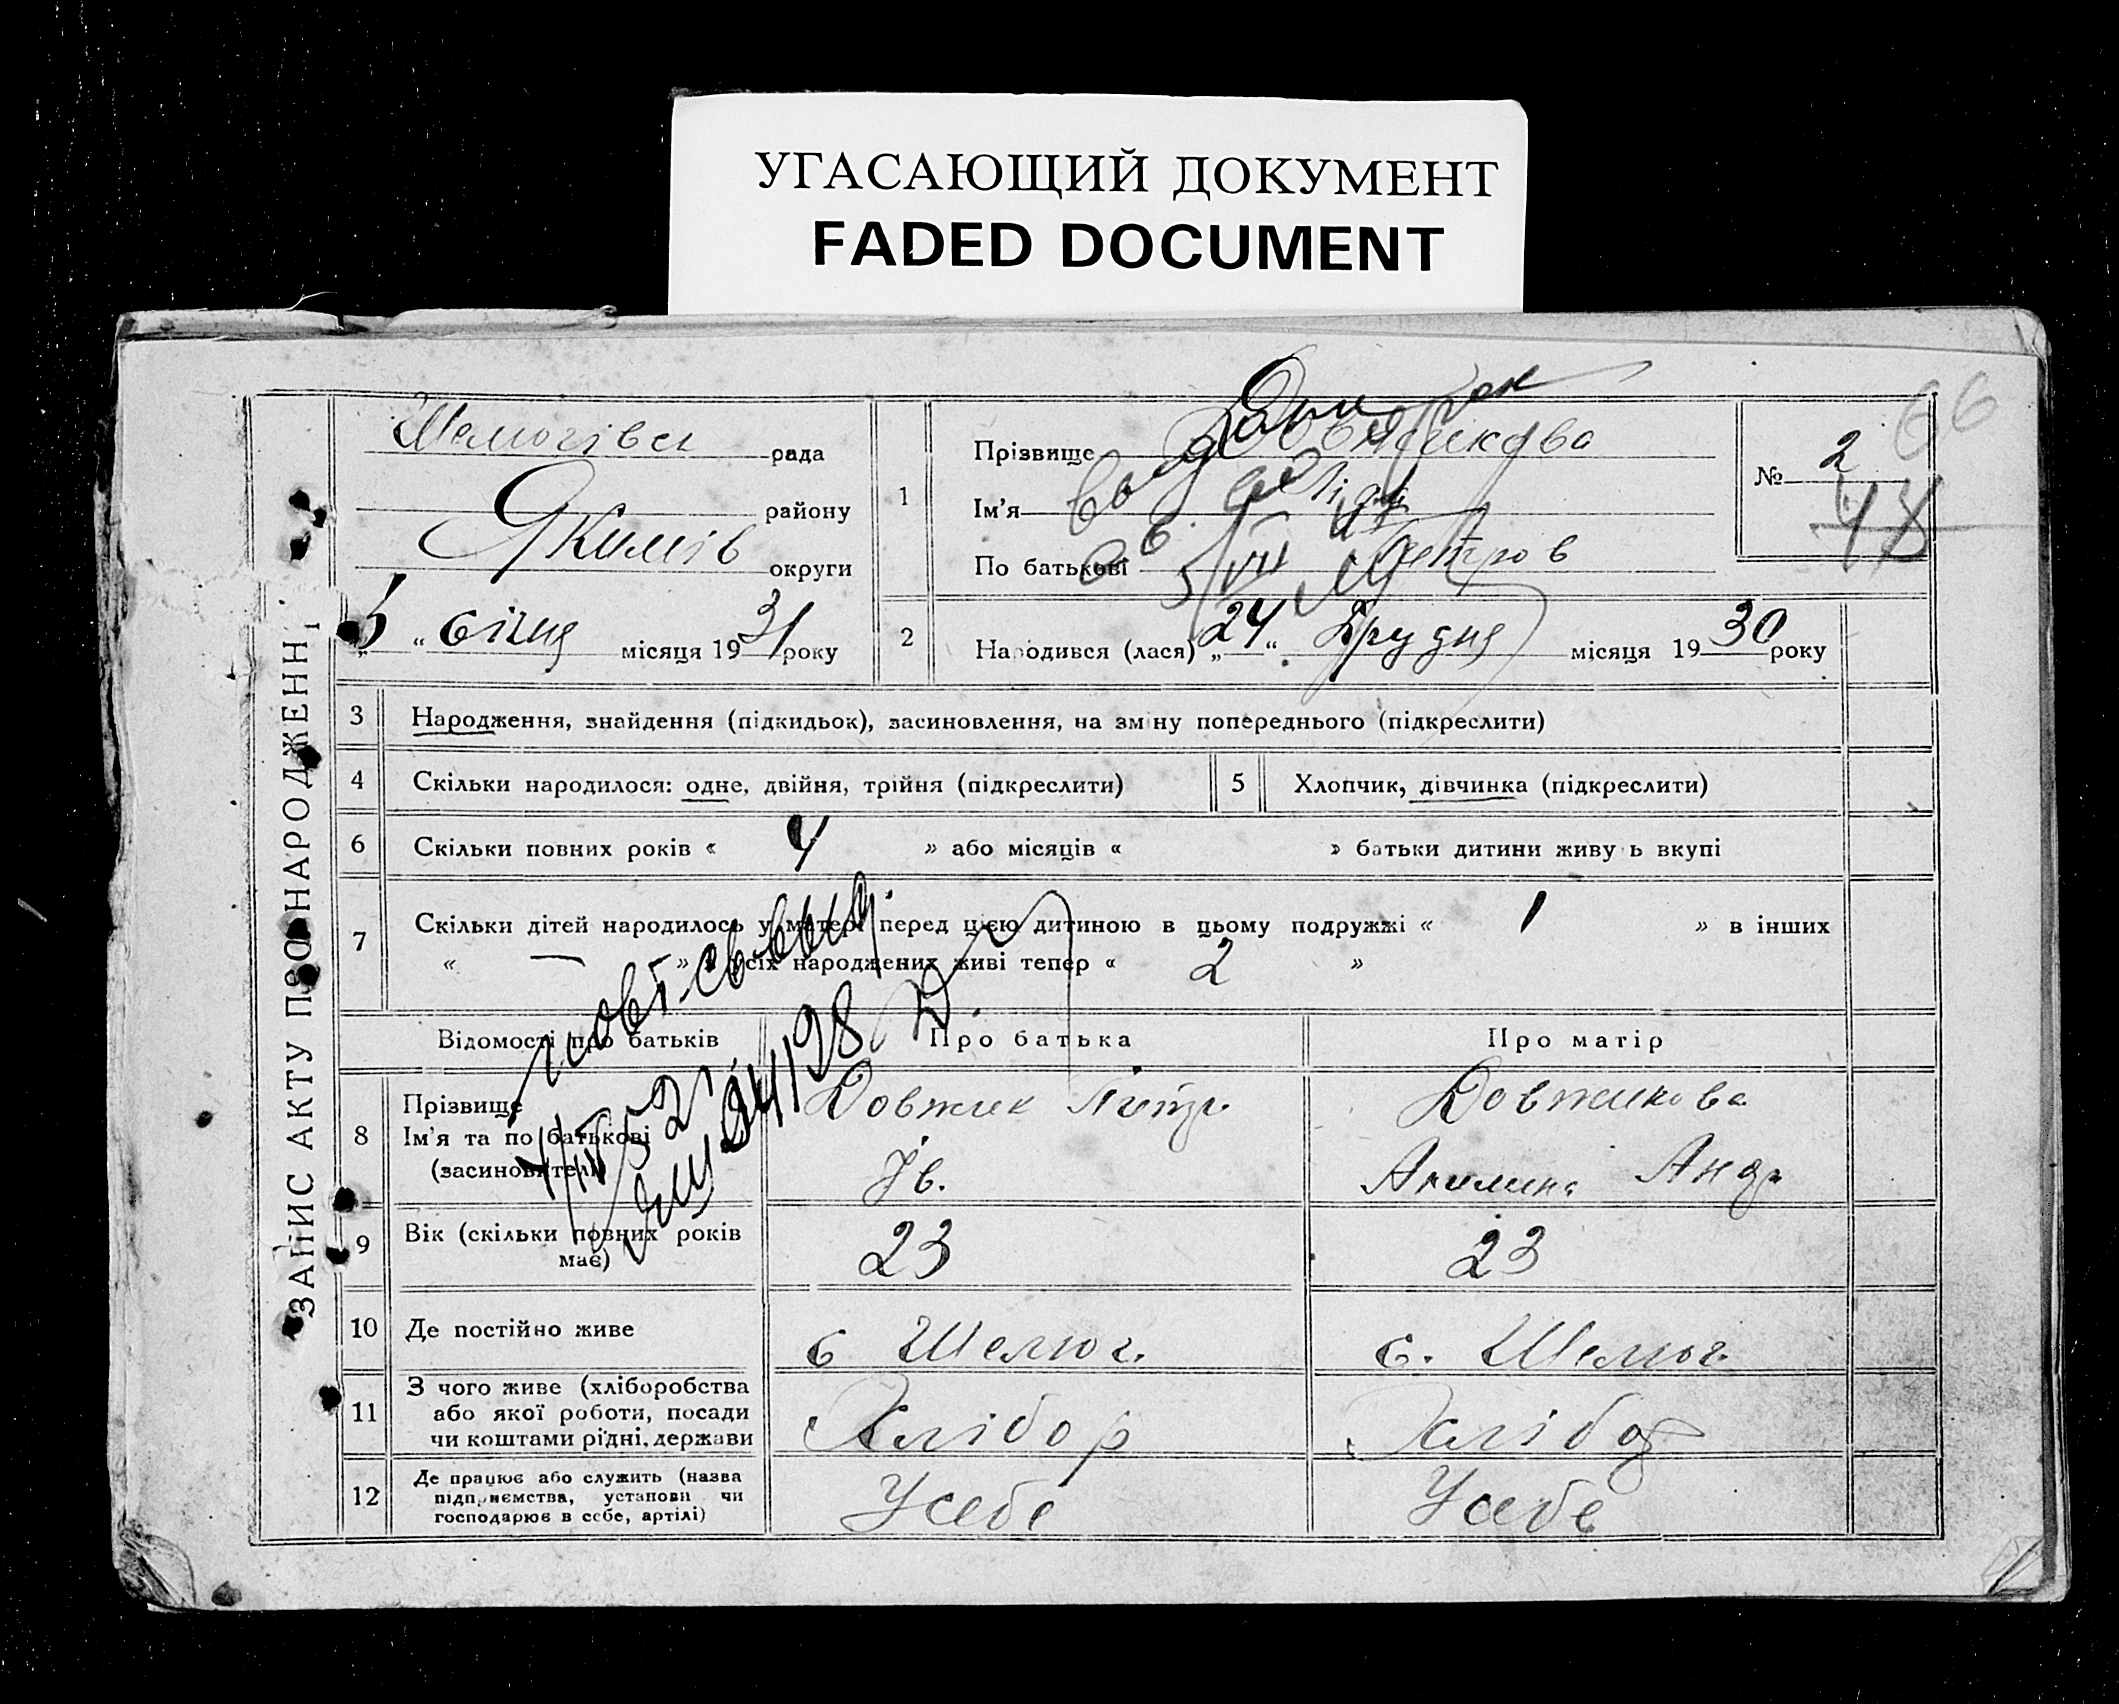 УГАСАЮЩИЙ ДОКУМЕНТ
FADED DOCUMENT
ЗАПИС АКТУ ПРО НАРОДЖЕНН
Шелюгівск рада
району
Якимів округи
"5" січня місяця 1931 року
1
Прізвище Довжикова
Ім'я Лідія
По батькові Петров
№ 2
66
48
2
Народився (лася) „24“ Грудня місяця 1930 року
3 Народження, знайдення (підкидьок), засиновлення, на зміну попереднього (підкреслити)
4 Скільки народилося: одне, двійня, трійня (підкреслити)
5 Хлопчик, дівчинка (підкреслити)
6 Скільки повних років « 4 » або місяців « » батьки дитини живуть вкупі
7 Скільки дітей народилось у матері перед цією дитиною в цьому подружжі « 1 » в інших
« — » з усіх народжених живі тепер « 2 »
Відомості про батьків
Про батька
Про матір
8
Прізвище
Ім'я та по батькові
(засиновителі)
Довжик Петр
Ів.
Довжикова
Акилина Андр
9
Вік (скільки повних років
має)
23
23
10 Де постійно живе
с Шелюг.
с. Шелюг.
11
З чого живе (хліборобства
або якої роботи, посади
чи коштами рідні, держави
Хлібор
Хлібор
12
Де працює або служить (назва
підприємства, установи чи
господарює в себе, артілі)
У себе
У себе
повт. св-выд.